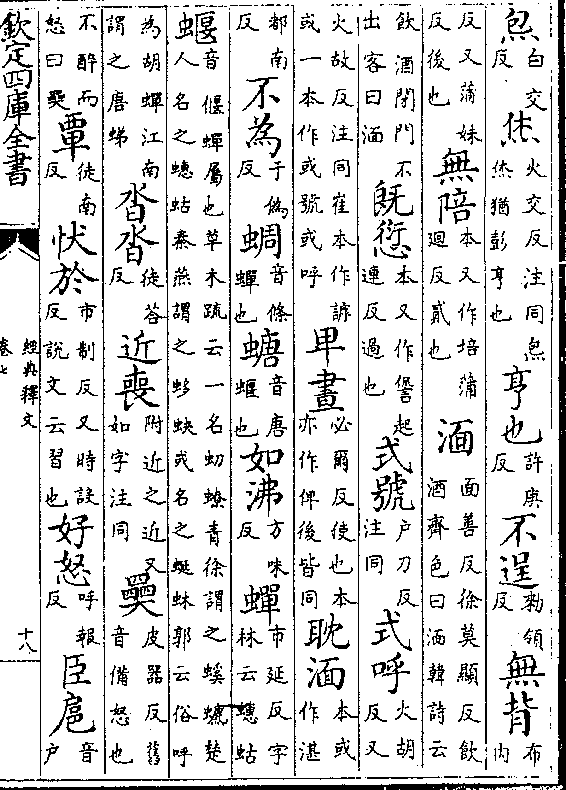 炰白交反烋火交反注同炰烋猶彭亨也亨也許庚反不逞勑領反無背布内
反又蒲妹反後也無陪本又作培蒲廻反貳也湎面善反徐莫顯反飲酒齊色曰湎韓詩云
飲酒閉門不出客曰湎既愆本又作諐起連反過也式號户刀反注同式呼火胡反又
火故反注同崔本作謼或一本作或號或呼卑晝必爾反使也本亦作俾後皆同耽湎本或作湛
都南反不為于偽反蜩音條蟬也螗音唐蝘也如沸方味反蟬市延反字林云蟪蛄
蝘音偃蟬屬也草木疏云一名虭蟟青徐謂之螇螰楚人名之蟪蛄秦燕謂之蛥蚗或名之蜓蚞郭云俗呼
為胡蟬江南謂之唐蛦沓沓徒荅反近喪附近之近又如字注同奰皮器反舊音備怒也
不醉而怒曰奰覃徒南反忕於市制反又時設反說文云習也好怒呼報反臣扈音户
欽定四庫全書
經典釋文
卷七
十八